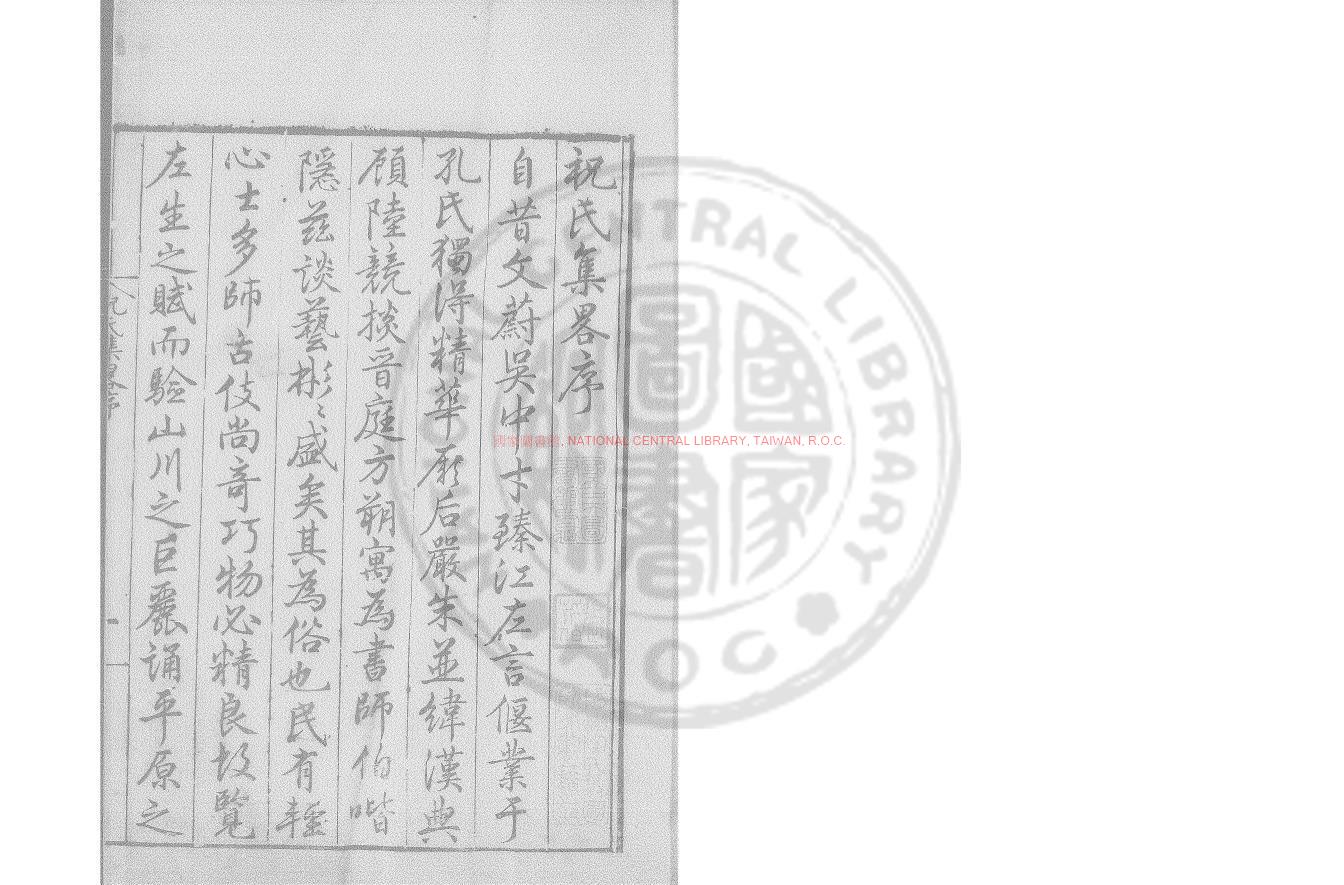 祝氏集畧序
自昔文蔚吳中才臻江左言偃業于
孔氏獨得精華厥后嚴朱並緯漢典
顧陸競掞晉庭方朔寓為書師伯喈
隱茲談藝彬〻盛矣其為俗也民有輕
心士多師古伎尚奇巧物必精良故覽
左生之賦而驗山川之巨麗誦平原之
祝氏集畧序
國家圖書館, NATIONAL CENTRAL LIBRARY, TAIWAN, R.O.C.
國家圖書
CENTRAL LIBRARY
ROC